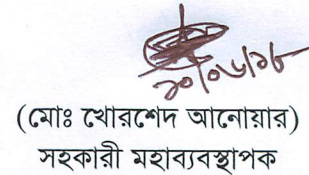 ২০/০৬/১৮
(মোঃ খোরশেদ আনোয়ার)
সহকারী মহাব্যবস্থাপক